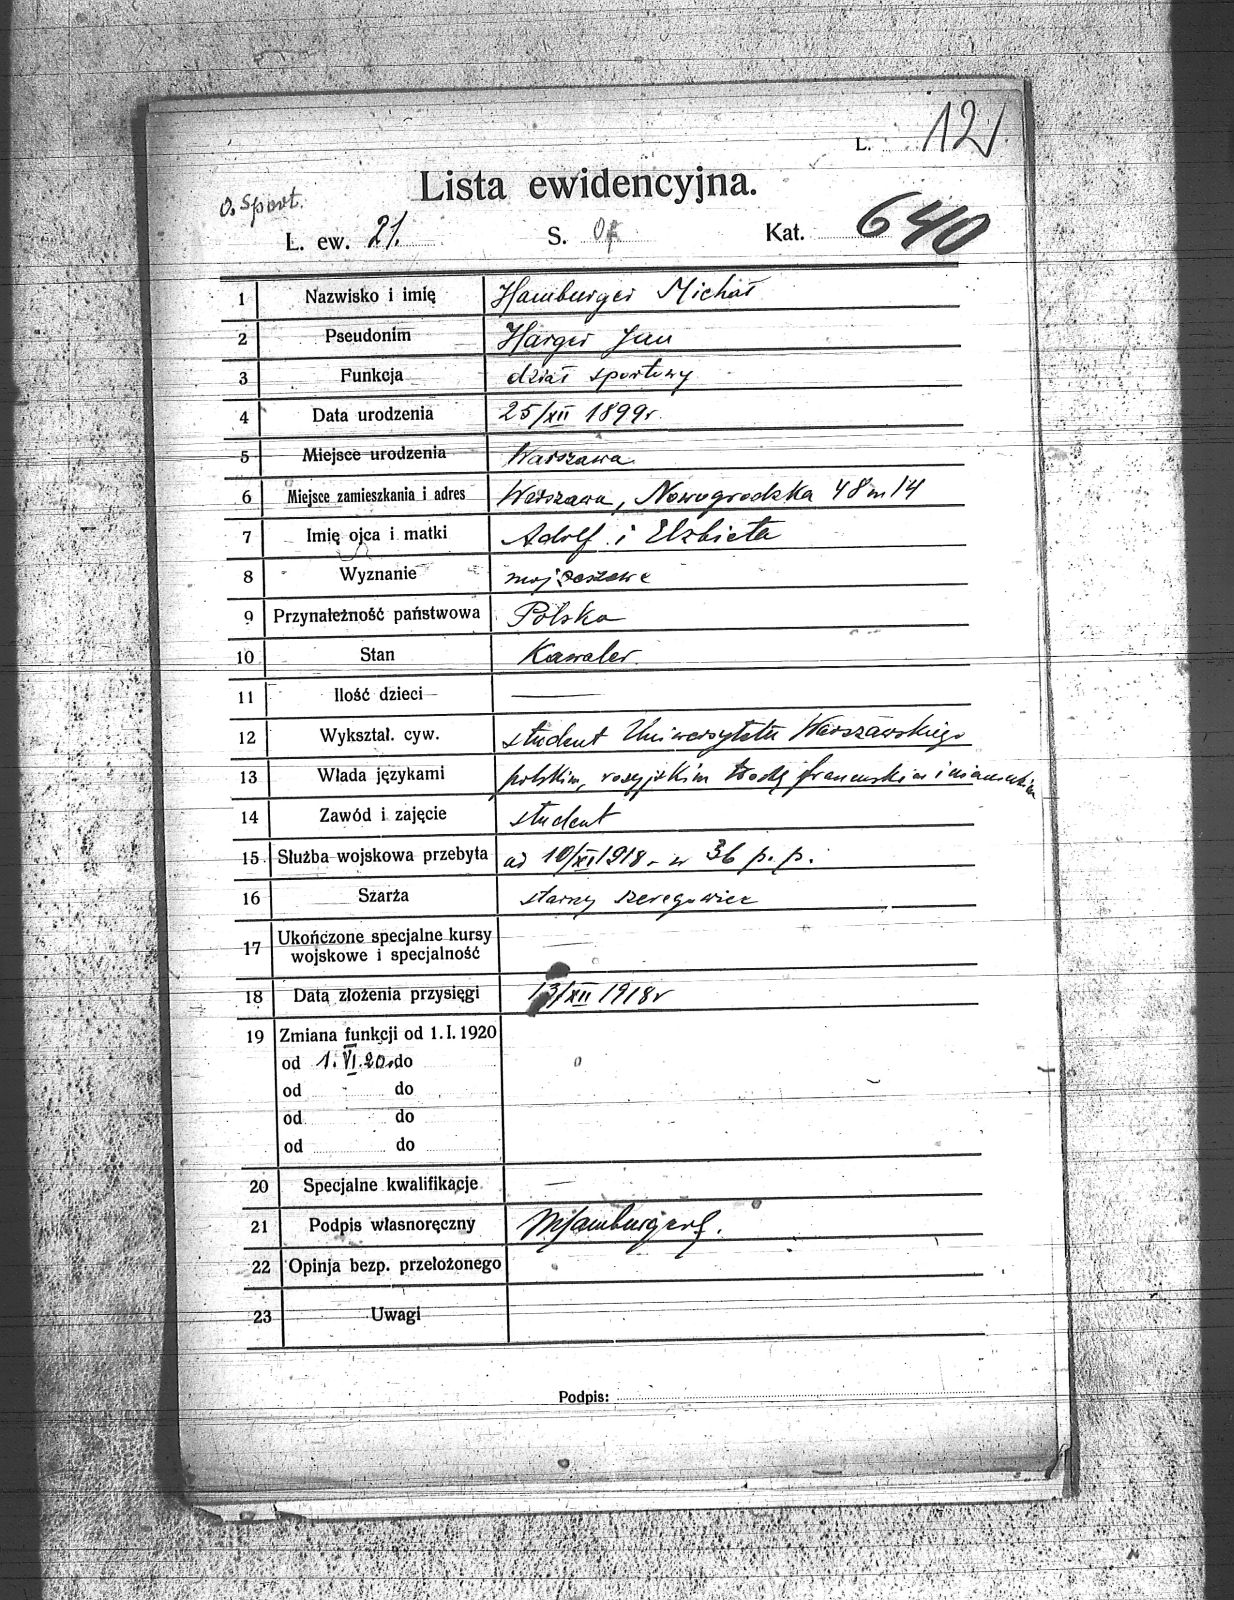 L. 12
Lista ewidencyjna.
o. Sport.
L. ew. 21. S. Of Kat. 640
1 Nazwisko i imię Hamburger Michał
2 Pseudonim Harger Jan
3 Funkcja dział sportowy
4 Data urodzenia 25/XII 1899r.
5 Miejsce urodzenia Warszawa
6 Miejsce zamieszkania i adres Warszawa, Nowogrodzka 48 m 14
7 Imię ojca i matki Adolf i Elżbieta
8 Wyznanie mojżeszowe
9 Przynależność państwowa Polska
10 Stan Kawaler
11 Ilość dzieci —
12 Wykształ. cyw. student Uniwersytetu Warszawskiego
13 Włada językami polskim, rosyjskim trochę francuskim i niemieckim
14 Zawód i zajęcie student
15 Służba wojskowa przebyta od 10/XI 1918 - w 36 p. p.
16 Szarża starszy szeregowiec
17 Ukończone specjalne kursy
wojskowe i specjalność
18 Data złożenia przysięgi 13/XII 1918r
19 Zmiana funkcji od 1. I. 1920
od 1. VI. 20. do
od do
od do
od do
20 Specjalne kwalifikacje —
21 Podpis własnoręczny MHamburger
22 Opinja bezp. przełożonego
23 Uwagi
Podpis: